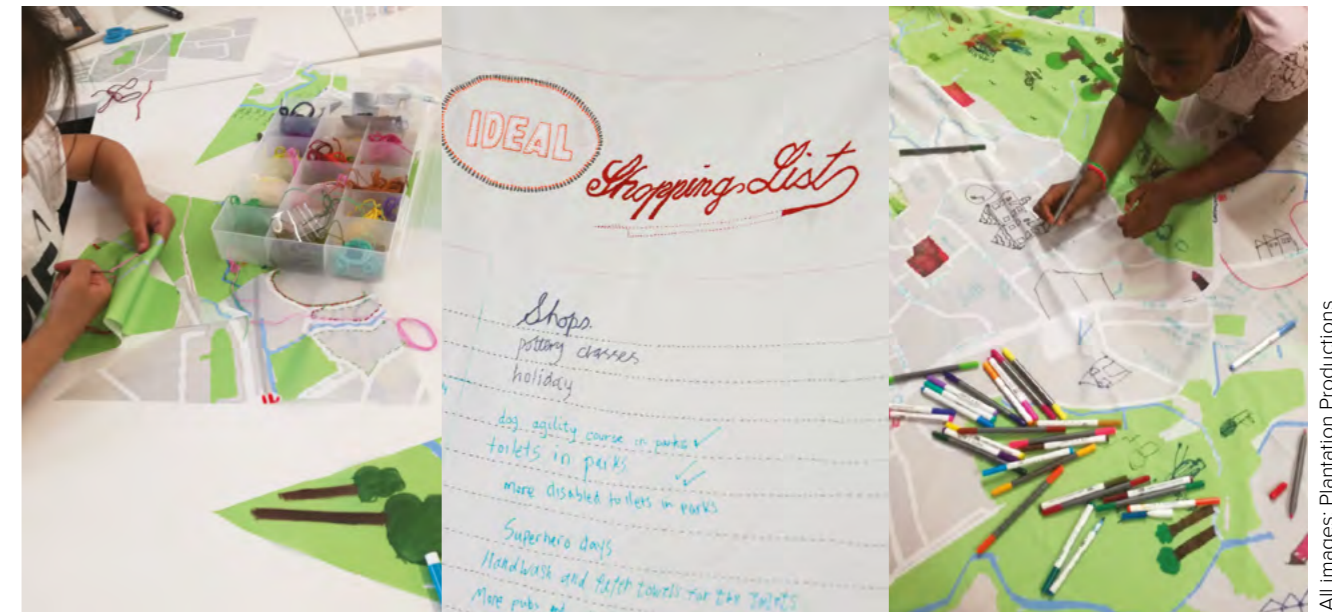 IDEAL
Shopping List
Shops
pottery classes
holiday
dog agility course in parks ✓
toilets in parks
more disabled toilets in parks
Superhero days
Handwash and towels for the toilets
More pubs
All images: Plantation Productions